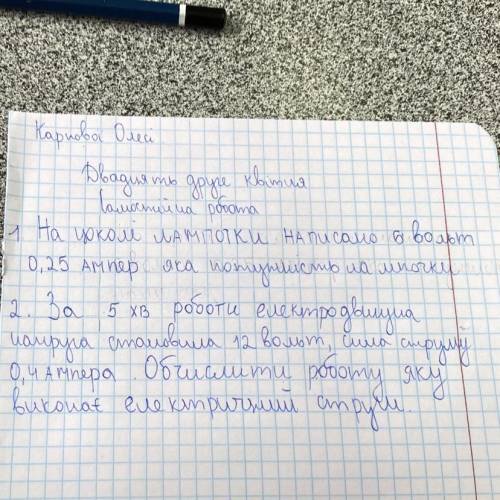 Карпова Олесі
Двадцять друге квітня
Самостійна робота
1. На цоколі лампочки написано 6 вольт
0,25 Ампер яка потужність лампочки
2. За 5 хв роботи електродвигуна
напруга становила 12 вольт, сила струму
0,4 Ампера. Обчислити роботу яку
виконає електричний струм.